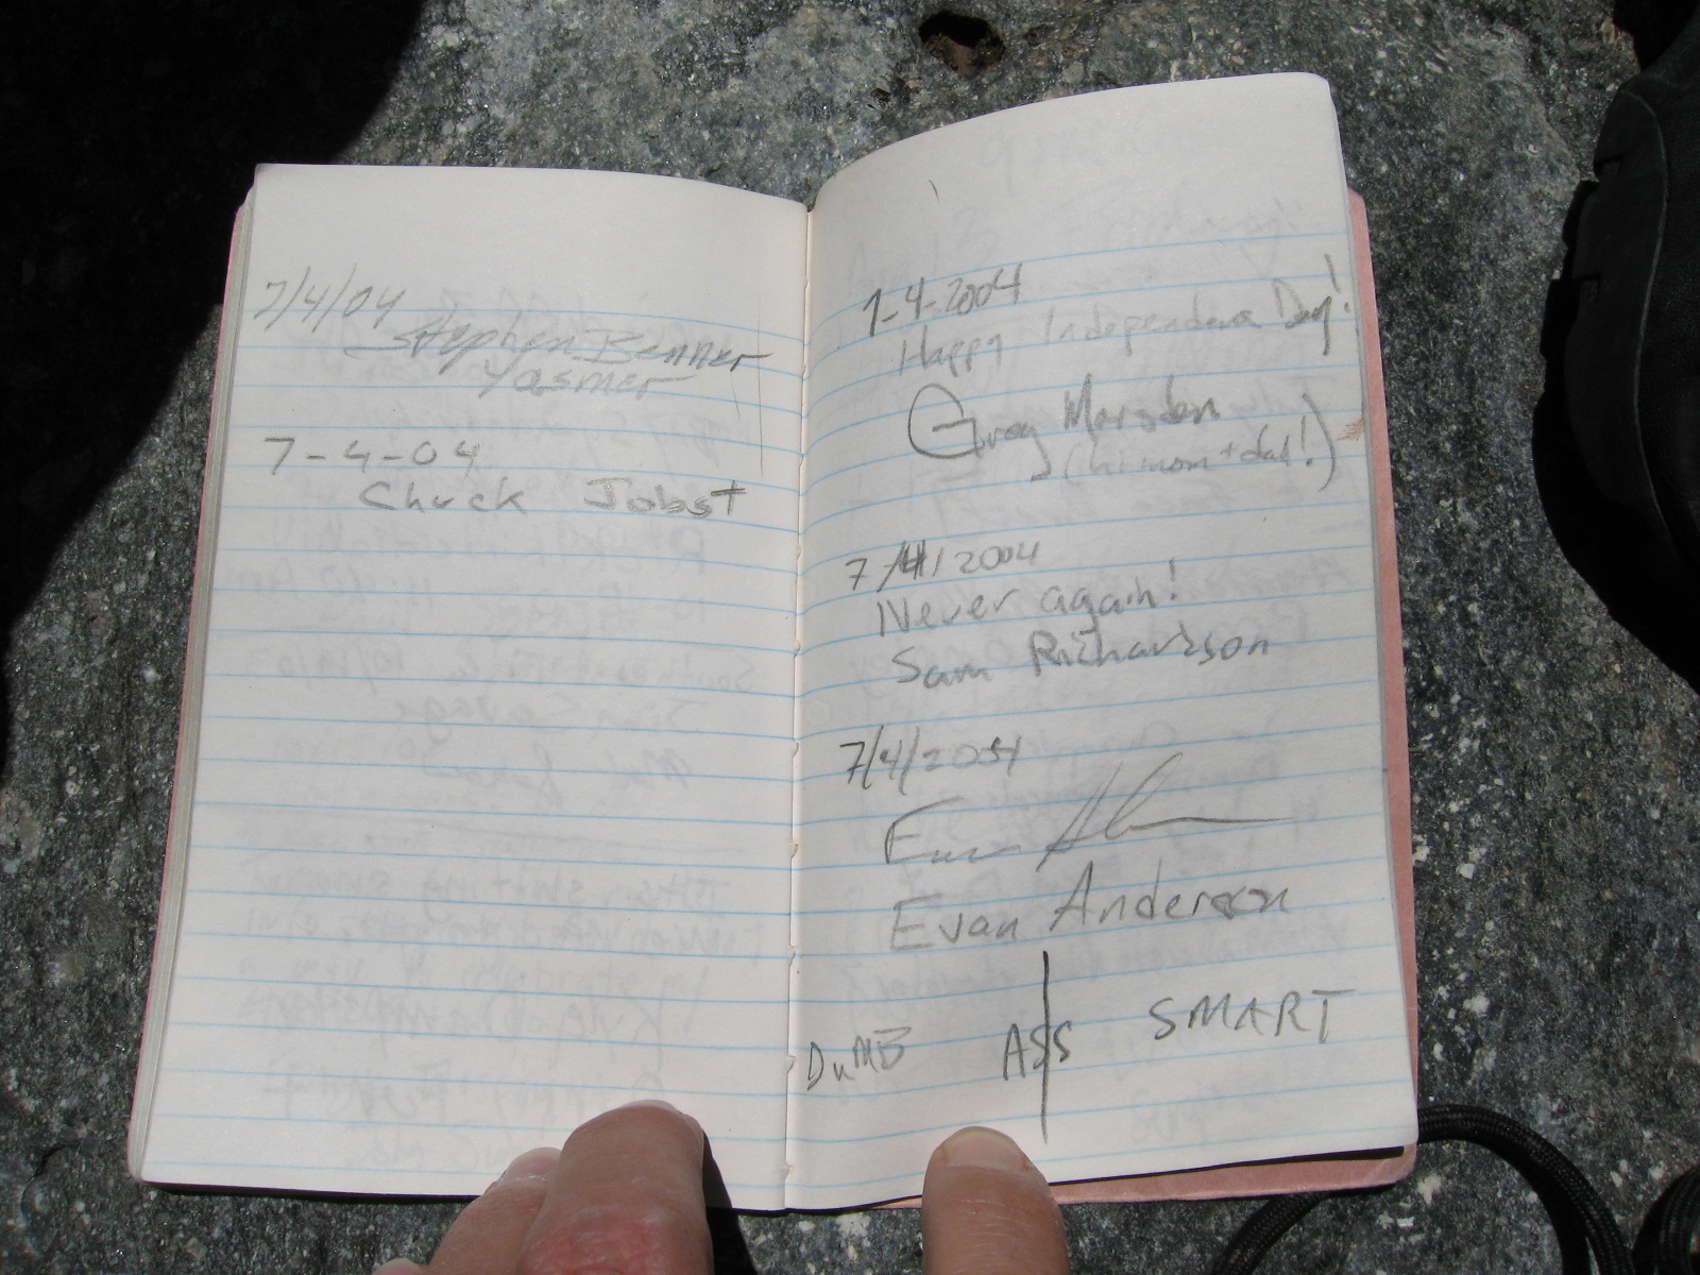 7/4/04
Stephen Benner
Yasmer
7-4-04
Chuck Jobst
7-4-2004
Happy Independence Day!
Greg Marsden
(hi mom + dad!)
7/4/2004
Never again!
Sam Richardson
7/4/2004
Evan Anderson
DuMB ASS SMART